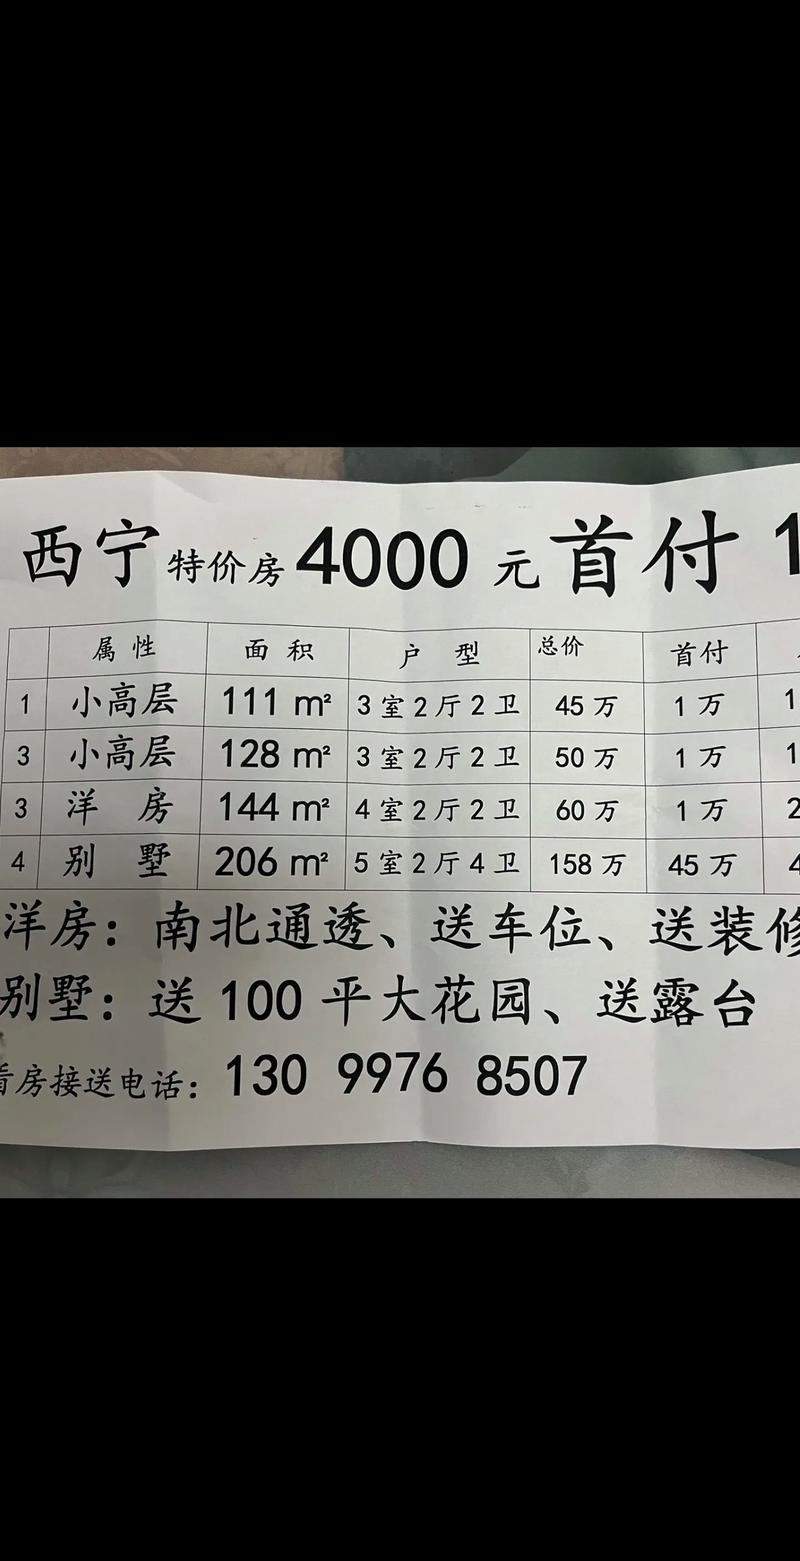 西宁特价房4000元首付1
属性 面积 户型 总价 首付
1 小高层 111 m² 3室2厅2卫 45万 1万 1
3 小高层 128 m² 3室2厅2卫 50万 1万 1
3 洋房 144 m² 4室2厅2卫 60万 1万 2
4 别墅 206 m² 5室2厅4卫 158万 45万 4
洋房：南北通透、送车位、送装修
别墅：送100平大花园、送露台
看房接送电话：130 9976 8507